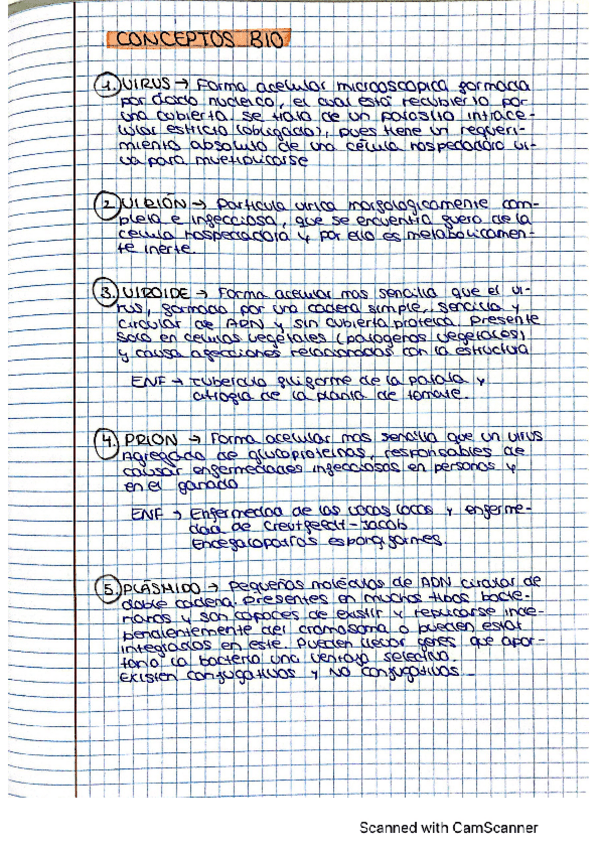 CONCEPTOS BIO
1. VIRUS → Forma acelular microoscopica formada
por ácido nucleico, el cual está recubierto por
una cubierta. se trata de un parasito intrace-
lular estricto (obligado), pues tiene un requeri-
miento absoluto de una célula hospedadora vi-
va para multiplicarse
2. VIRIÓN → Particula virica morfologicamente com-
pleta e infecciosa, que se encuentra fuera de la
celula hospedadora y por ello es metabolicamen-
te inerte.
3. VIROIDE → Forma acelular mas sencilla que el vi-
rus, formada por una cadena simple, sencilla y
circular de ARN y sin cubierta proteica. Presente
solo en celulas vegetales (patogenos vegetales)
y causa afecciones relacionadas con la estructura
ENF → tuberculo fusiforme de la patata y
atrofia de la planta de tomate.
4. PRION → Forma acelular mas sencilla que un virus
Agregado de glucoproteinas, responsables de
causar enfermedades infecciosas en personas y
en el ganado
ENF → Enfermedad de las vacas locas y enferme-
dad de Creutgeedt-Jacob
Encefalopatías espongiformes.
5. PLÁSMIDO → Pequeñas moléculas de ADN circular de
doble cadena. Presentes en muchos tipos bacte-
rianos y son capaces de existir y replicarse inde-
pendientemente del cromosoma o pueden estar
integrados en este. Pueden llevar genes que apor-
tan a la bacteria una ventaja selectiva.
Existen conjugativos y NO conjugativos
Scanned with CamScanner